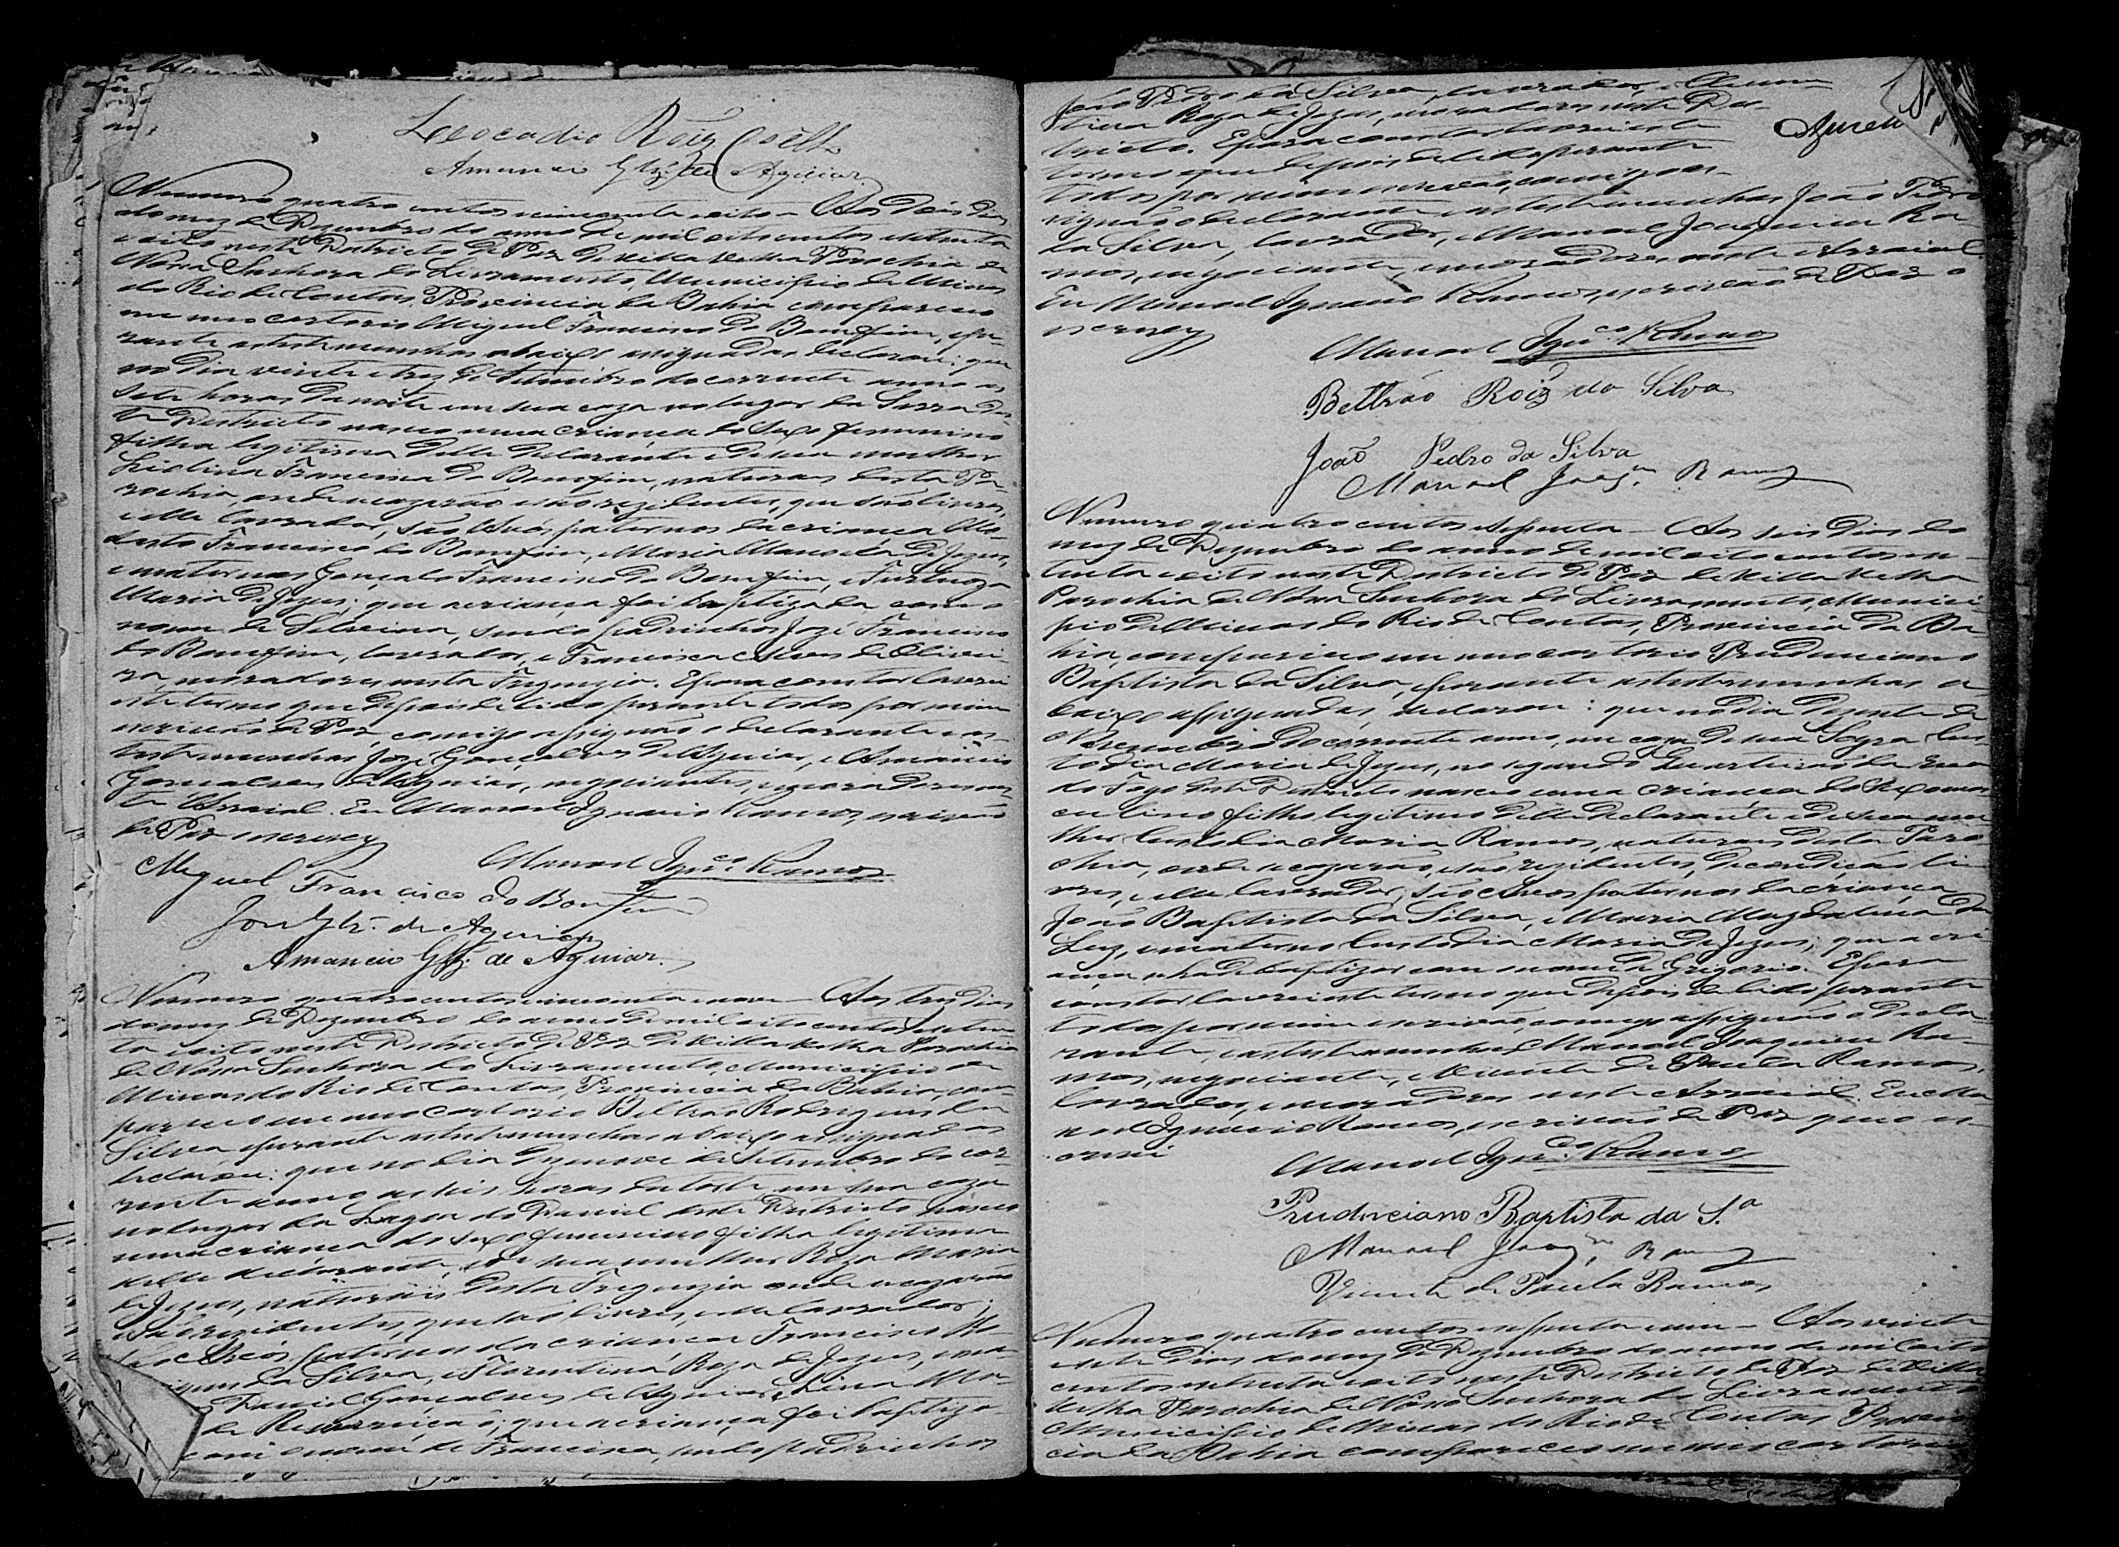 Leocadio Roiz Coelho
Amancio Glz de Aguiar
Numero quatro centos cincoenta e oito — Aos dois dias
do mez de Dezembro do anno de mil oito centos e setenta
e oito neste Districto de Paz de Villa Velha Parochia de
Nossa Senhora do Livramento, Municipio de Minas
do Rio de Contas, Provincia da Bahia compareceo
em meo cartorio Miguel Francisco do Bomfim, e pe-
rante as testemunhas abaixo assignadas declarou: que
no dia vinte e tres de Setembro do corrente anno as
sete horas da noite em sua caza no lugar da Serra des-
te Districto nasceo uma criança do sexo feminino
filha legitima delle declarante e de sua mulher
Francisca do Bomfim, naturaes desta Pa-
rochia, onde se cazarão e são rezidentes, que são livres,
e elle lavrador, são avós paternos da criança Mo-
desto Francisco do Bomfim, e Maria Manoela de Jezus,
e maternos Gonçalo Francisco do Bomfim, e
Maria de Jezus; que a criança foi baptizada com o
nome de sendo padrinhos José Francisco
do Bomfim, lavrador, e Francisca Alves de Olivei-
ra, moradores nesta Freguezia. E para constar lavrei
este termo que depois de lido perante todos por mim
escrivão de Paz, comigo assignão o declarante e as
testemunhas José Gonçalves de Aguiar, e Amancio
Gonçalves de Aguiar, negociantes, moradores nes-
te Arraial. Eu Manoel Ignacio Ramos, escrivão
de Paz escrevy
Manoel Ign.co Ramos
Miguel Francisco do Bomfim
José Glz. de Aguiar
Amancio Glz. de Aguiar.
Numero quatro centos cincoenta e nove — Aos tres dias
do mez de Dezembro do anno de mil oito centos e seten-
ta e oito neste Districto de Paz de Villa Velha Parochia
de Nossa Senhora do Livramento, Municipio de
Minas do Rio de Contas, Provincia da Bahia, com-
pareceo em meo cartorio Beltrão Rodrigues da
Silva e perante as testemunhas abaixo assignadas
declarou: que no dia dezenove de Setembro do cor-
rente anno as seis horas da tarde em sua caza
no lugar da Lagoa do Daniel deste Districto nasceo
uma criança do sexo feminino filha legitima
delle declarante, e de sua mulher Roza Maria
de Jezus, naturaes desta Freguezia onde se cazarão
e são rezidentes, que são livres, e elle lavrador;
são avós paternos da criança Francisco Ro-
drigues da Silva, e Florentina Roza de Jezus, e ma-
Daniel Gonçalves de Aguiar, e Lina Ma-
de que a criança foi baptiza-
com o nome de Francisca, sendo padrinhos
João Pedro da Silva, lavrador, e
Roza de Jezus, moradores neste Dis-
tricto. E para constar lavrei este
termo que depois de lido perante
todos por mim escrivão, comigo as-
signão o declarante e as testemunhas João Pedro
da Silva, lavrador, e Manoel Joaquim Ra-
mos, negociante, moradores neste Arraial.
Eu Manoel Ignacio Ramos, escrivão de Paz o
escrevy
Manoel Ign.co Ramos
Beltrão Roiz da Silva
João Pedro da Silva
Manoel Joaq.m Ramos
Numero quatro centos e sessenta — Aos seis dias do
mez de Dezembro do anno de mil oito centos e se-
tenta e oito neste Districto de Paz de Villa Velha
Parochia de Nossa Senhora do Livramento, Munici-
pio de Minas do Rio de Contas, Provincia da Ba-
hia, compareceo em meo cartorio Prudenciano
Baptista da Silva, e perante as testemunhas a-
baixo assignadas, declarou: que no dia de
Novembro do corrente anno, em caza de sua Sogra Cus-
todia Maria de Jezus, no segundo Quarteirão da
do deste Districto nasceo uma criança do sexo mas-
culino filho legitimo delle declarante e de sua mu-
lher Custodia Maria Ramos, naturaes desta Paro-
chia, onde se cazarão, e são rezidentes, de condição li-
vres, e elle lavrador; são avós paternos da criança
João Baptista da Silva, e Maria Magdalena da
Luz, e materna Custodia Maria de Jezus; que a cri-
ança se ha de baptizar com o nome de Grigorio. E para
constar lavrei este termo que depois de lido perante
todos por mim escrivão, comigo assignão o decla-
rante, e as testemunhas Manoel Joaquim Ra-
mos, negociante, e Vicente de Paula Ramos,
lavrador, e moradores neste Arraial. Eu Ma-
noel Ignacio Ramos, escrivão de Paz que es-
crevi
Manoel Ign.co Ramos
Prudenciano Baptista da S.a
Manoel Joaq.m Ramos
Vicente de Paula Ramos
Numero quatro centos e sessenta e um — Aos vinte
e sete dias do mez de Dezembro do anno de mil oito
centos e setenta e oito neste Districto de Paz de Villa
Velha Parochia de Nossa Senhora do Livramento
Municipio de Minas do Rio de Contas Provin-
cia da Bahia compareceo em meo cartorio